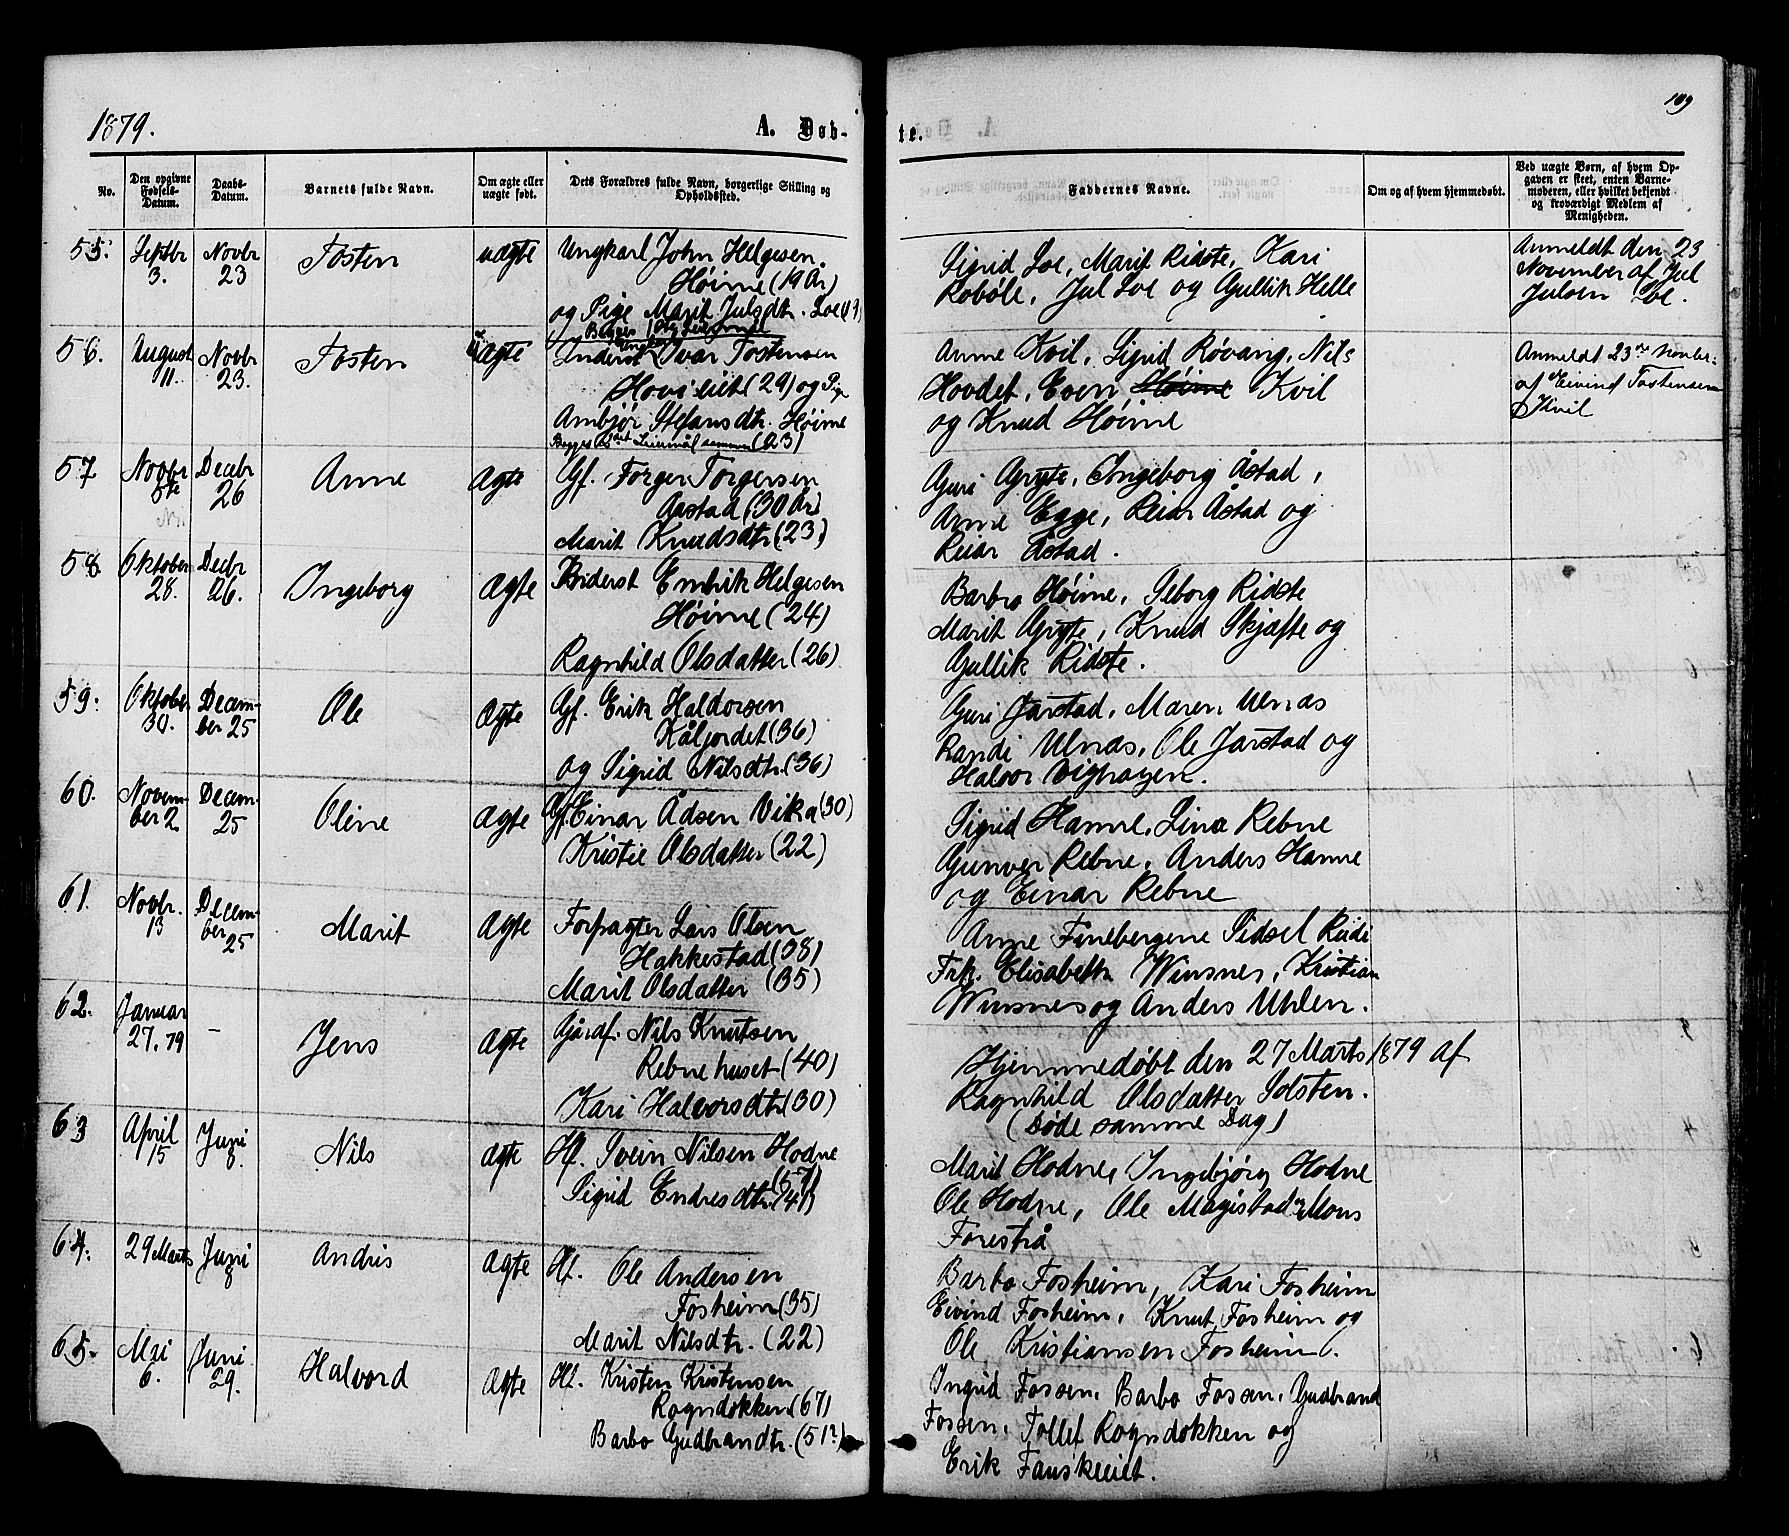 1879.
A. Døb-
te.
109
No.
Den opgivne Fødsels-Datum.
Daabs-Datum.
Barnets fulde Navn.
Om ægte eller uægte født.
Dets Forældres fulde Navn, borgerlige Stilling og Opholdssted.
Faddernes Navne.
Om og af hvem hjemmedøbt.
Ved uægte Børn, af hvem Op-
gaven er skeet, enten Barne-
moderen, eller hvilket bekjendt
og troværdigt Medlem af
Menigheden.
55. Septbr 3. Novbr 23 Tosten uægte
Ungkarl John Helgesen
Høime (19 År)
og Pige Marit Julsdtr. Loe (19)
Begges 1ste Leiermål
Sigrid Loe, Marit Ridste, Kari
Robøle, Jul Loe og Gullik Helle
Anmeldt den 23
November af Jul
Julsen Loe.
56. August 11. Novbr 23. Tosten Uægte
Inderst Ungkarl Ivar Tostensen
Hovseiet (29) og Pige
Ambjør Stefansdtr. Høime
Begges 1ste Leiermål sammen (23)
Anne Kvil, Sigrid Røvang, Nils
Hovdet, Even Høime Kvil
og Knud Høime
Anmeldt 23de Novbr.
af Eivind Tostensen
Kvil
57 Novbr 5te Decbr 26 Anne Ægte
Gf. Torger Torgersen
Aastad (30 År)
Marit Knudsdtr. (23)
Guri Gryte, Ingeborg Åstad,
Anne Egge, Reiar Åstad og
Reiar Åstad.
58 Oktober 28. Decbr 26. Ingeborg Ægte
Inderst Embrik Helgesen
Høime (24)
Ragnhild Olsdatter (26)
Barbro Høime, Seborg Ridste
Marit Gryte, Knud Skjæfte og
Gullik Ridste.
59. Oktober 30. Decem-
ber 25 Ole Ægte
Gf. Erik Haldorsen
Kåljordet (36)
og Sigrid Nilsdtr. (36)
Guri Jarstad, Maren Ulnæs
Randi Ulnæs, Ole Jarstad og
Halvor Vighagen.
60. Novem-
ber 2 Decem-
25 Oline Ægte
Gf. Einar Ådsen Vika (30)
Kristie Olsdatter (22)
Sigrid Hamre, Lina Rebne
Gunver Rebne, Anders Hamre
og Einar Rebne
61. Novbr. 13 Decem-
ber 25 Marit Ægte
Forpagter Lars Olsen
Hakkestad (38)
Marit Olsdatter (35)
Anne Finebergene Sidsel Riidi
Frk. Elisabeth Winsnes, Kristian
Winsnes og Anders Uhlen.
62. Januar 27. 79 – Jens Ægte
Gårdf. Nils Knutsen
Rebnehuset (40)
Kari Halvorsdtr. (30)
Hjemmedøbt den 27 Marts 1879 af
Ragnhild Olsdatter Solsten.
(Døde samme Dag)
63 April 15 Juni 8. Nils ægte
Hf. Svein Nilsen Hodne
(57)
Sigrid Endresdtr. (41)
Marit Hodne, Ingebjørg Hodne
Ole Hodne, Ole Magistad og Mons
Forestrå
64. 29 Marts Juni 8 Andris Ægte
Hf. Ole Andersen
Fosheim (35)
Marit Nilsdtr. (22)
Barbo Fosheim, Kari Fosheim
Eivind Fosheim, Knut Fosheim og
Ole Kristiansen Fosheim.
65. Mai 6. Juni 29. Halvord Ægte
Hf. Kristen Kristensen
Rogndokken (67)
Barbo Gudbrandtr. (51?)
Ingrid Fossen, Barbo Fossen, Gudbrand
Fossen, Tollef Rogndokken og
Erik Fauskeeiet.